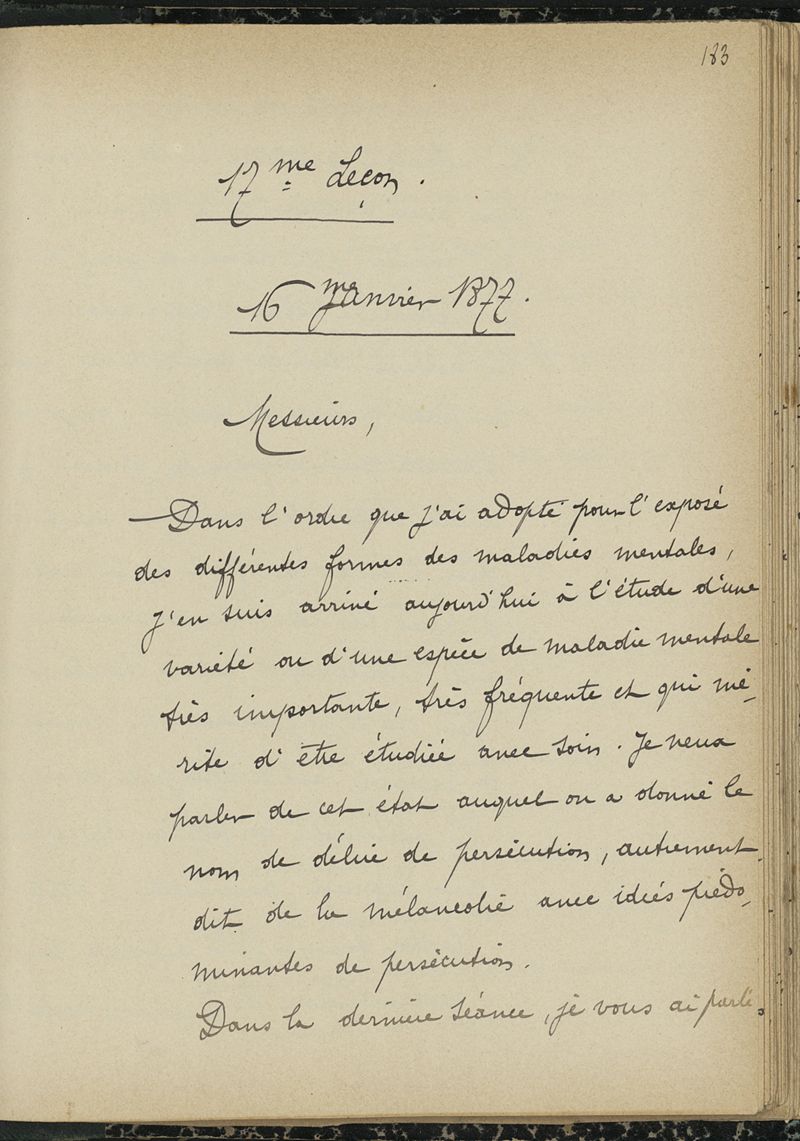 183
17me Leçon.
16 me Janvier 1877.
Messieurs,
Dans l'ordre que j'ai adopté pour l'exposé
des différentes formes des maladies mentales,
j'en suis arrivé aujourd'hui à l'étude d'une
variété ou d'une espèce de maladie mentale
très importante, très fréquente et qui mé-
rite d'être étudiée avec soin. Je veux
parler de cet état auquel on a donné le
nom de délire de persécution, autrement
dit de la mélancolie avec idées prédo-
minantes de persécution.
Dans la dernière séance, je vous ai parlé